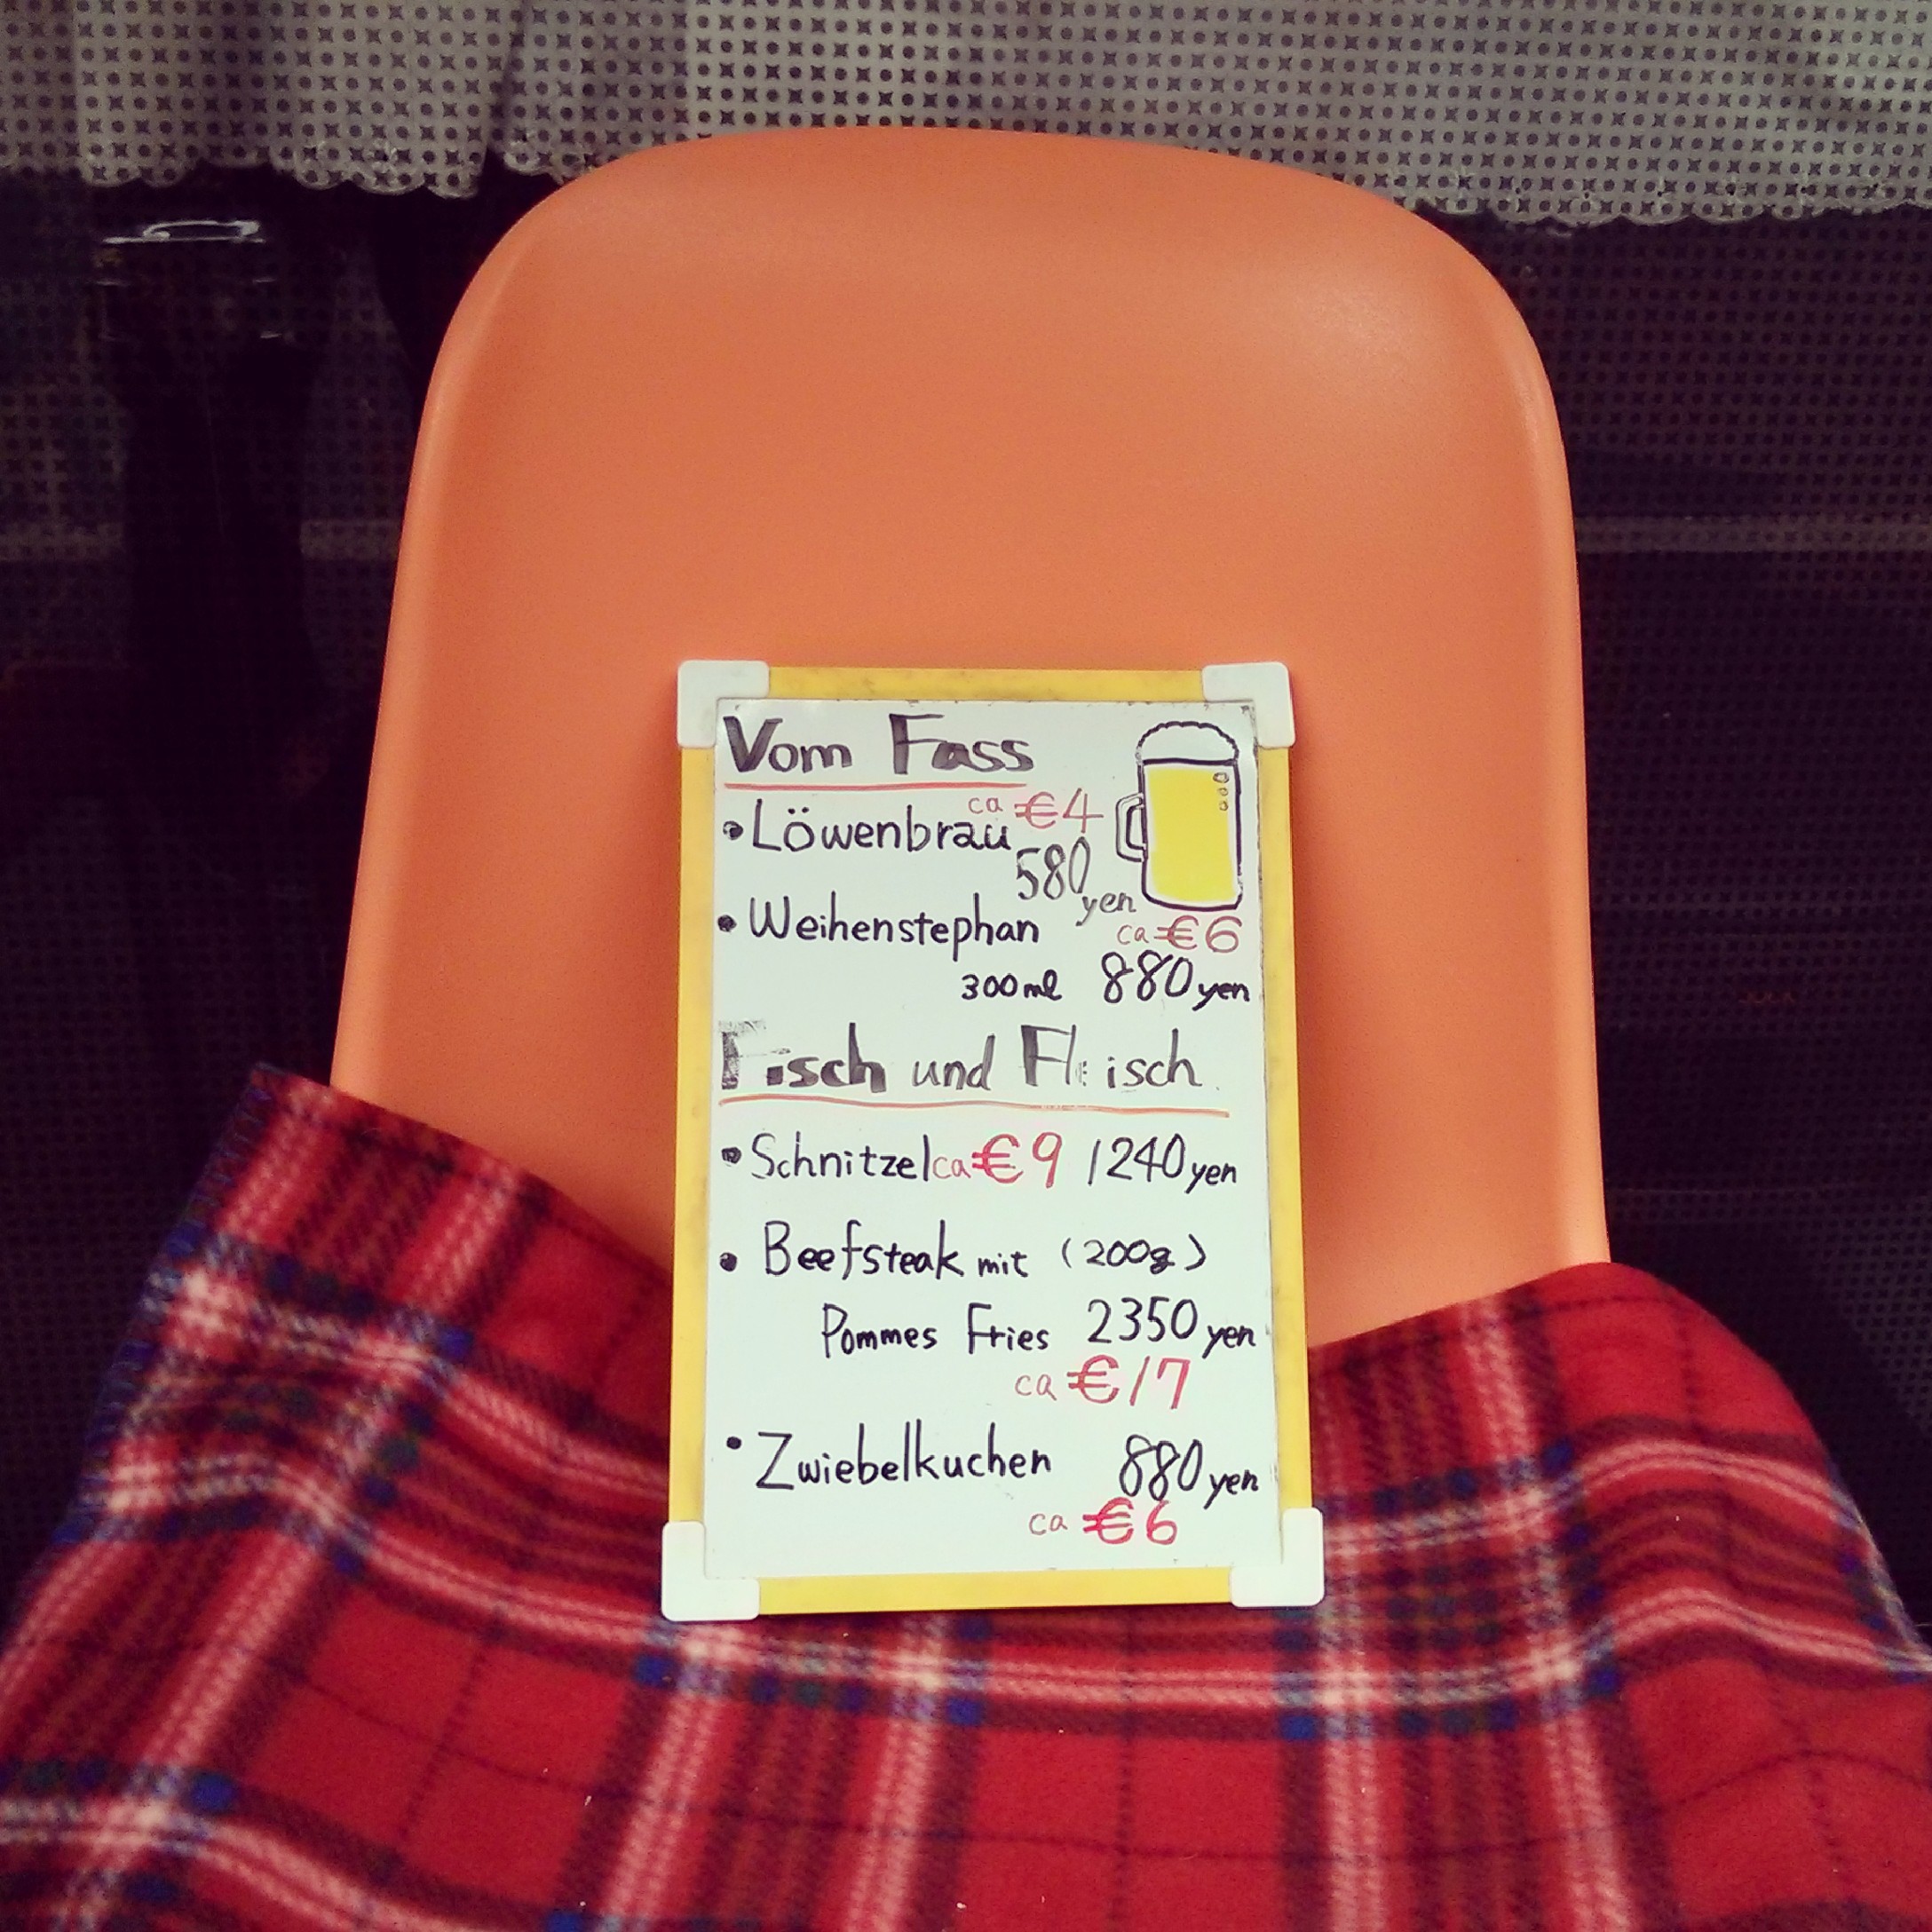 Vom Fass
ca €4
• Löwenbrau
580 yen
• Weihenstephan ca €6
300ml 880 yen
Fisch und Fleisch
• Schnitzel ca €9 1240 yen
• Beefsteak mit (200g)
Pommes Fries 2350 yen
ca €17
• Zwiebelkuchen 880 yen
ca €6